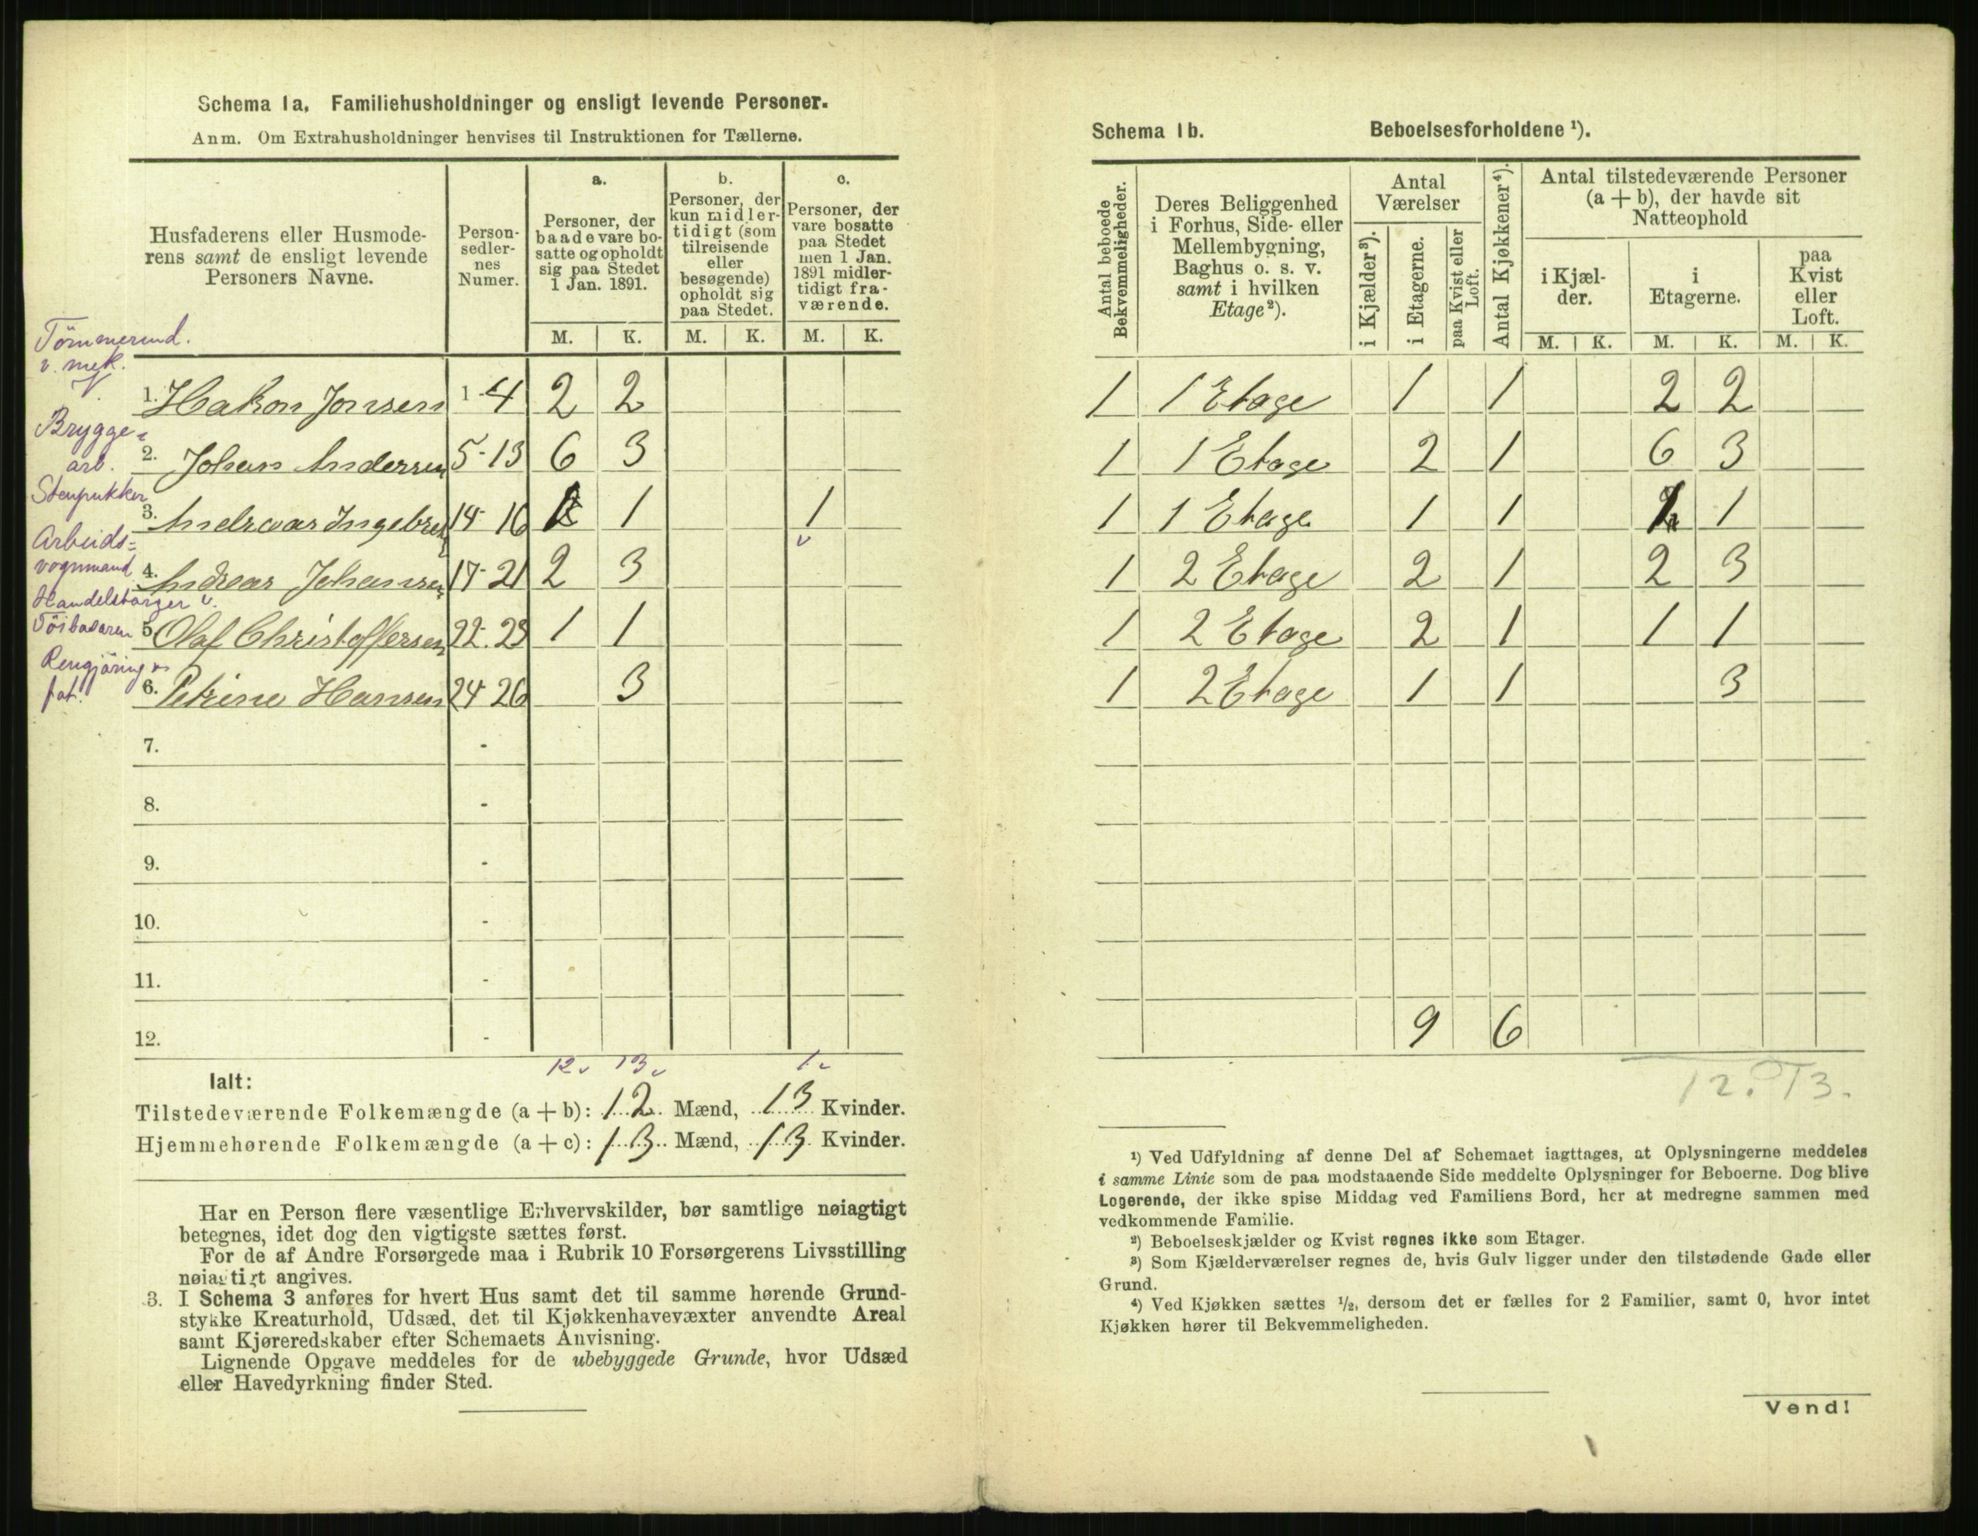 Schema 1a. Familiehusholdninger og ensligt levende Personer.
Anm. Om Extrahusholdninger henvises til Instruktionen for Tællerne.
Husfaderens eller Husmode-
rens samt de ensligt levende
Personers Navne.
Person-
sedler-
nes
Numer.
a.
Personer, der
baade vare bo-
satte og opholdt
sig paa Stedet
1 Jan. 1891.
b.
Personer, der
kun midler-
tidigt (som
tilreisende
eller
besøgende)
opholdt sig
paa Stedet.
c.
Personer, der
vare bosatte
paa Stedet
men 1 Jan.
1891 midler-
tidigt fra-
værende.
M. K. M. K. M. K.
Tömmermd.
v. mek.
V.
1. Hakon Jonsen 1-4 2 2
Brygge-
arb.
2. Johan Andersen 5-13 6 3
Stenpukker
3. Andreas Ingebret 14-16 1 1 1
Arbeids-
vognmand
4. Andreas Johansen 17-21 2 3
Handelsborger v.
Töibasaren
5. Olaf Christoffersen 22-23 1 1
Rengjöring
6. Petrine Hansen 24-26 3
7. -
8. -
9. -
10. -
11. -
12. -
12 13 1
Ialt:
Tilstedeværende Folkemængde (a + b): 12 Mænd, 13 Kvinder.
Hjemmehørende Folkemængde (a + c): 13 Mænd, 13 Kvinder.
Har en Person flere væsentlige Erhvervskilder, bør samtlige nøiagtigt
betegnes, idet dog den vigtigste sættes først.
For de af Andre Forsørgede maa i Rubrik 10 Forsørgerens Livsstilling
nøiagtigt angives.
3. I Schema 3 anføres for hvert Hus samt det til samme hørende Grund-
stykke Kreaturhold, Udsæd, det til Kjøkkenhavevæxter anvendte Areal
samt Kjøreredskaber efter Schemaets Anvisning.
Lignende Opgave meddeles for de ubebyggede Grunde, hvor Udsæd
eller Havedyrkning finder Sted.
Schema 1b. Beboelsesforholdene ¹).
Antal beboede
Bekvemmeligheder.
Deres Beliggenhed
i Forhus, Side- eller
Mellembygning,
Baghus o. s. v.
samt i hvilken
Etage²).
Antal
Værelser
i Kjælder³).
i Etagerne.
paa Kvist eller
Loft.
Antal Kjøkkener⁴).
Antal tilstedeværende Personer
(a + b), der havde sit
Natteophold
i Kjæl-
der.
i
Etagerne.
paa
Kvist
eller
Loft.
M. K. M. K. M. K.
1 1 Etage 1 1 2 2
1 1 Etage 2 1 6 3
1 1 Etage 1 1 1 1
1 2 Etage 2 1 2 3
1 2 Etage 2 1 1 1
1 2 Etage 1 1 3
9 6
12. 13.
¹) Ved Udfyldning af denne Del af Schemaet iagttages, at Oplysningerne meddeles
i samme Linie som de paa modstaaende Side meddelte Oplysninger for Beboerne. Dog blive
Logerende, der ikke spise Middag ved Familiens Bord, her at medregne sammen med
vedkommende Familie.
²) Beboelseskjælder og Kvist regnes ikke som Etager.
³) Som Kjælderværelser regnes de, hvis Gulv ligger under den tilstødende Gade eller
Grund.
⁴) Ved Kjøkken sættes ½, dersom det er fælles for 2 Familier, samt 0, hvor intet
Kjøkken hører til Bekvemmeligheden.
Vend!